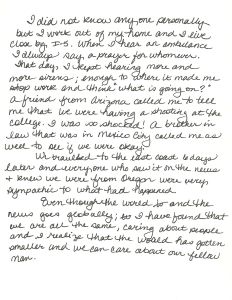 I did not know anyone personally
but I work out of my home and I live
close by I-5. When I hear an ambulance
I always say a prayer for whomever.
That day I kept hearing more and
more sirens; enough to where it made me
stop work and think "what is going on?"
A friend from Arizona called me to tell
me that we were having a shooting at the
college. I was so shocked! A brother in
law that was in Mexico City called me as
well to see if we were okay.
We travelled to the east coast days
later and everyone who saw it on the news
& knew we were from Oregon were very
sympathetic to what had happened.
Even though the world is and the
news goes globally; so I have found that
we are all the same, caring about people
and I realize that the world has gotten
smaller and we can care about our fellow
man.